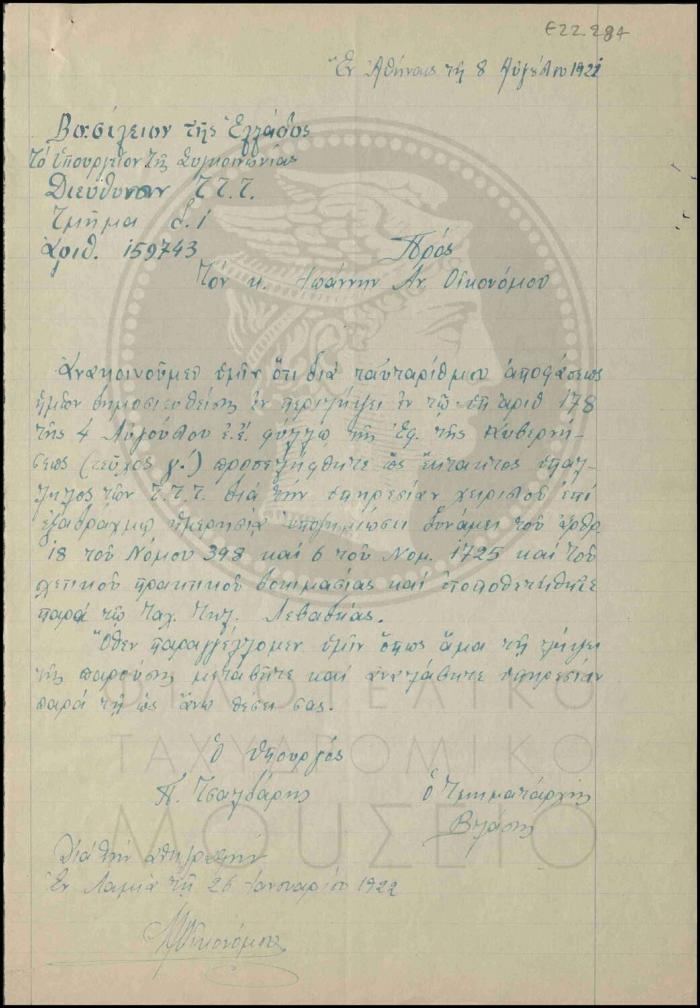 E22.284
Ἐν Ἀθήναις τῇ 8 Αὐγούστου 1921
Βασίλειον τῆς Ἑλλάδος
Τό Ὑπουργεῖον τῆς Συγκοινωνίας
Διεύθυνσιν Τ.Τ.Τ.
Τμῆμα
Ἀριθ. 159743
Πρός
Τόν κ. Ἰωάννην Ἀν. Οἰκονόμου
Ἀνακοινοῦμεν ὑμῖν ὅτι διά ταὐταρίθμου ἀποφάσεως
ἡμῶν δημοσιευθείσης ἐν περιλήψει ἐν τῷ ὑπ' ἀριθ 178
τῆς 4 Αὐγούστου ἐ.ἔ. φύλλῳ τῆς Ἐφ. τῆς Κυβερνή-
σεως (τεῦχος γ') προσελήφθητε ὡς ἔκτακτος ὑπάλ-
ληλος τῶν Τ.Τ.Τ. διά τήν ὑπηρεσίαν χειρισμοῦ ἐπί
ἑξαδράχμῳ ἡμερησίᾳ ἀποζημιώσει δυνάμει τοῦ ἄρθρ
18 τοῦ Νόμου 398 καί 6 τοῦ Νομ. 1725 καί τοῦ
σχετικοῦ πρακτικοῦ δοκιμασίας καί ἐτοποθετήθητε
παρά τῷ Ταχ. Τηλ. Λεβαδείας.
Ὅθεν παραγγέλλομεν ὑμῖν ὅπως ἅμα τῇ λήψει
τῆς παρούσης μεταβῆτε καί ἀναλάβητε ὑπηρεσίαν
παρά τῇ ὡς ἄνω θέσει σας.
Ὁ Ὑπουργός
Π. Τσαλδάρης Ὁ Τμηματάρχης
Βλάσης
Διά τήν ἀντιγραφήν
Ἐν Λαμίᾳ τῇ 26 Ἰανουαρίου 1922
Οἰκονόμου
ΦΙΛΟΤΕΛΙΚΟ
ΤΑΧΥΔΡΟΜΙΚΟ
ΜΟΥΣΕΙΟ